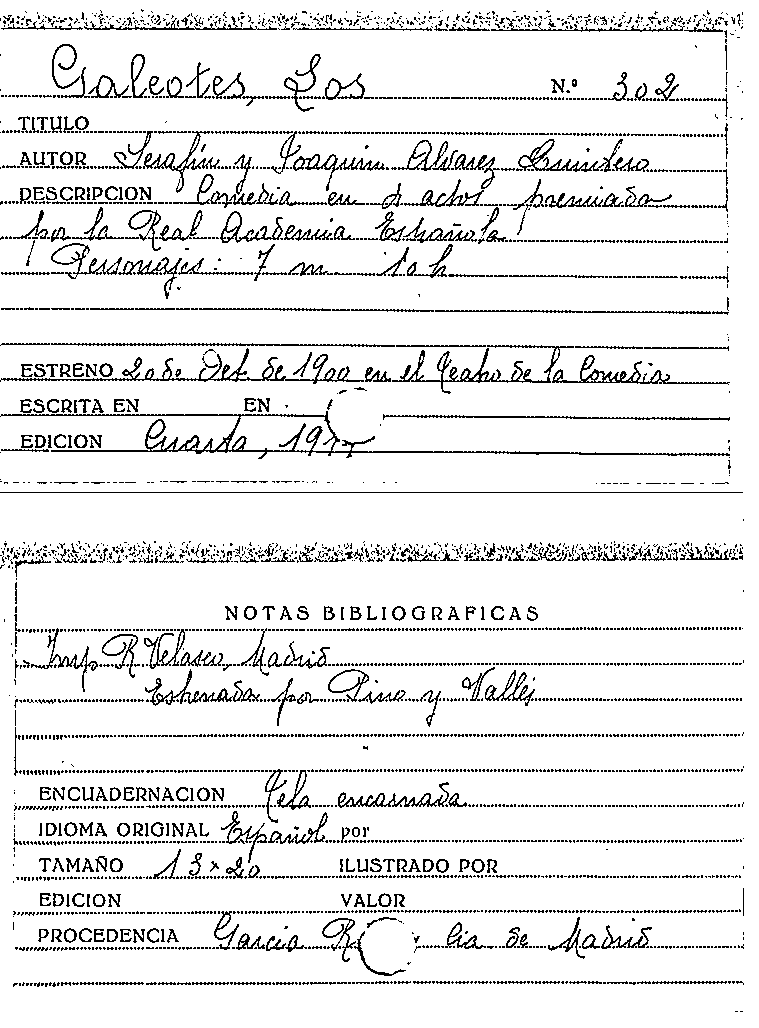 Galeotes, Los N.º 302
TITULO
AUTOR Serafín y Joaquin Alvarez Quintero
DESCRIPCION Comedia en 4 actos, premiada
por la Real Academia Española
Personajes: 7 m. 10 h.
ESTRENO 20 de Oct. de 1900 en el Teatro de la Comedia
ESCRITA EN EN
EDICION Cuarta,
NOTAS BIBLIOGRAFICAS
Imp R Velasco, Madrid
Estrenada por Pino y Vallés
ENCUADERNACION Tela encarnada
IDIOMA ORIGINAL Español por
TAMAÑO 13 x 20 ILUSTRADO POR
EDICION VALOR
PROCEDENCIA Garcia de Madrid